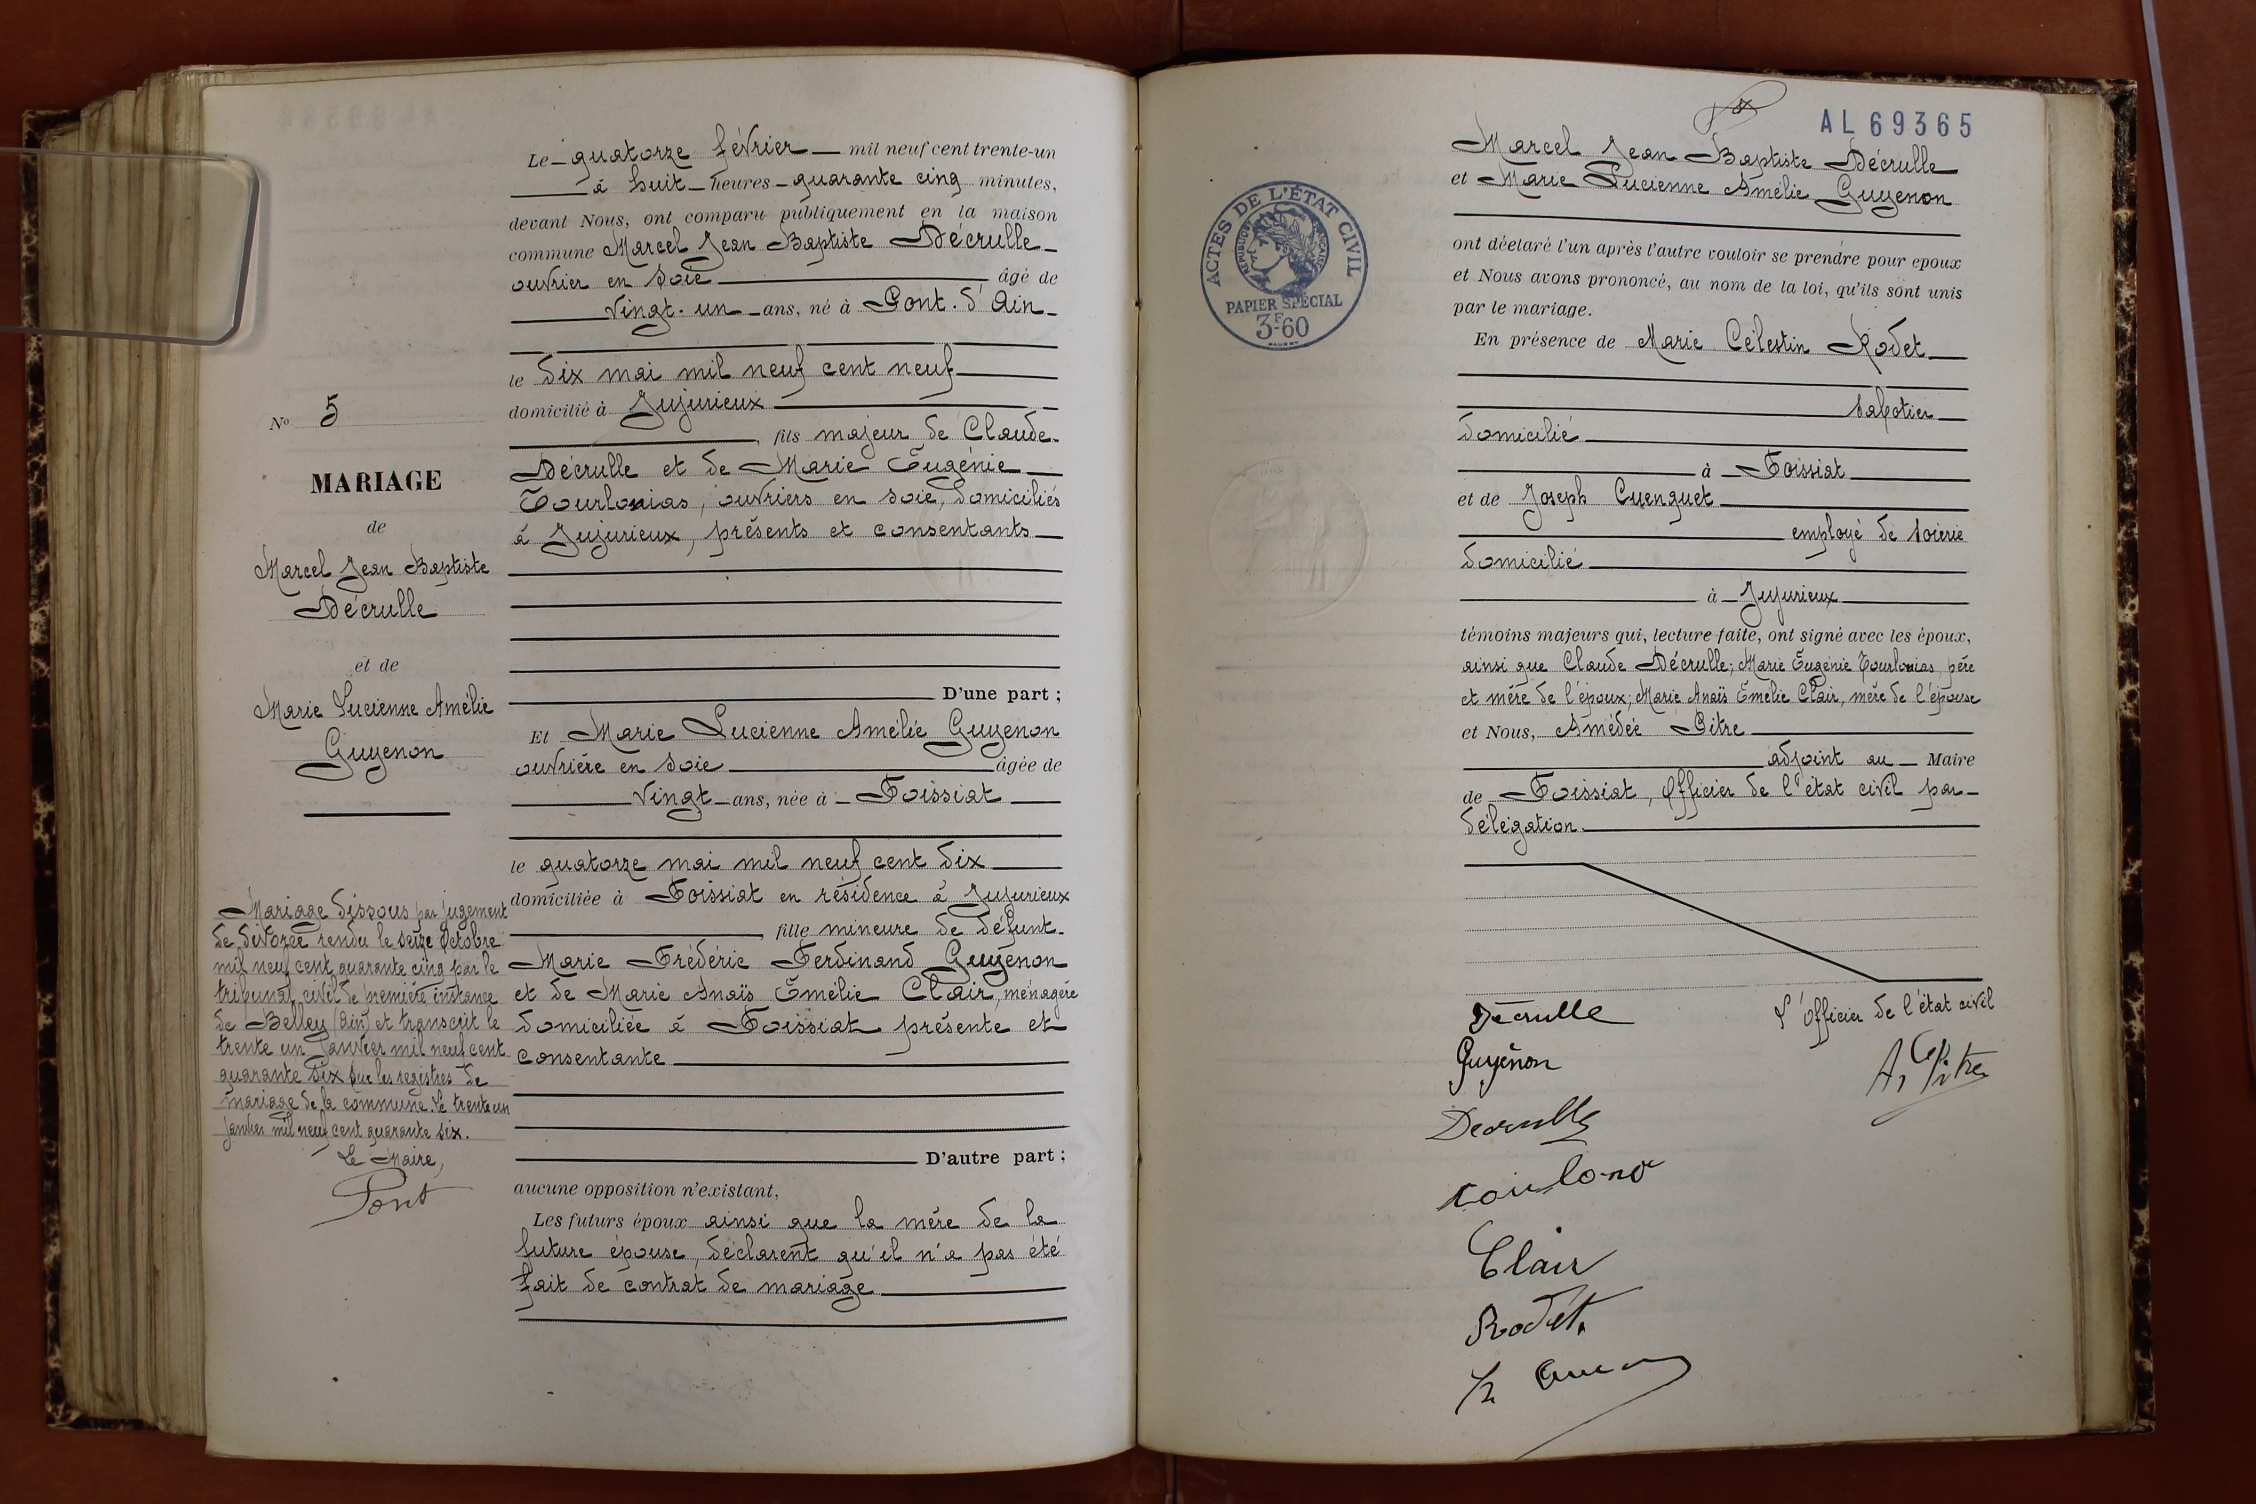 Le quatorze février mil neuf cent trente-un
à huit heures quarante cinq minutes,
devant Nous, ont comparu publiquement en la maison
commune Marcel Jean Baptiste Décrulle
ouvrier en soie âgé de
vingt-un ans, né à Pont-d'Ain
le dix mai mil neuf cent neuf
domicilié à Jujurieux
, fils majeur de Claude
Décrulle et de Marie Eugénie
Tourlonias, ouvriers en soie, domiciliés
à Jujurieux, présents et consentants
D'une part ;
Et Marie Lucienne Amélie Guyenon
ouvrière en soie âgée de
vingt ans, née à Foissiat
le quatorze mai mil neuf cent dix
domiciliée à Foissiat en résidence à Jujurieux
, fille mineure de défunt
Marie Frédéric Ferdinand Guyenon
et de Marie Anaïs Emélie Clair, ménagère
domiciliée à Foissiat présente et
consentante
D'autre part ;
aucune opposition n'existant,
Les futurs époux ainsi que la mère de la
future épouse, déclarent qu'il n'a pas été
fait de contrat de mariage
No 5
MARIAGE
de
Marcel Jean Baptiste
Décrulle
et de
Marie Lucienne Amélie
Guyenon
Mariage dissous par jugement
de divorce rendu le seize octobre
mil neuf cent quarante cinq par le
tribunal civil de première instance
de Belley (Ain) et transcrit le
trente un janvier mil neuf cent
quarante six sur les registres de
mariage de la commune. Le trente un
janvier mil neuf cent quarante six.
Le Maire,
Pont
AL 69365
ACTES DE L'ÉTAT CIVIL
RÉPUBLIQUE FRANÇAISE
PAPIER SPÉCIAL
3F60
Marcel Jean Baptiste Décrulle
et Marie Lucienne Amélie Guyenon
ont déclaré l'un après l'autre vouloir se prendre pour époux
et Nous avons prononcé, au nom de la loi, qu'ils sont unis
par le mariage.
En présence de Marie Célestin Rodet
sabotier
domicilié
à Foissiat
et de Joseph Cuenguet
employé de soierie
domicilié
à Jujurieux
témoins majeurs qui, lecture faite, ont signé avec les époux,
ainsi que Claude Décrulle; Marie Eugénie Tourlonias, père
et mère de l'époux; Marie Anaïs Emélie Clair, mère de l'épouse
et Nous, Amédée Pitre
adjoint au Maire
de Foissiat, officier de l'état civil par
délégation.
Décrulle
L'officier de l'état civil
Guyénon
A, Pitre
Decrulle
Clair
Rodet.